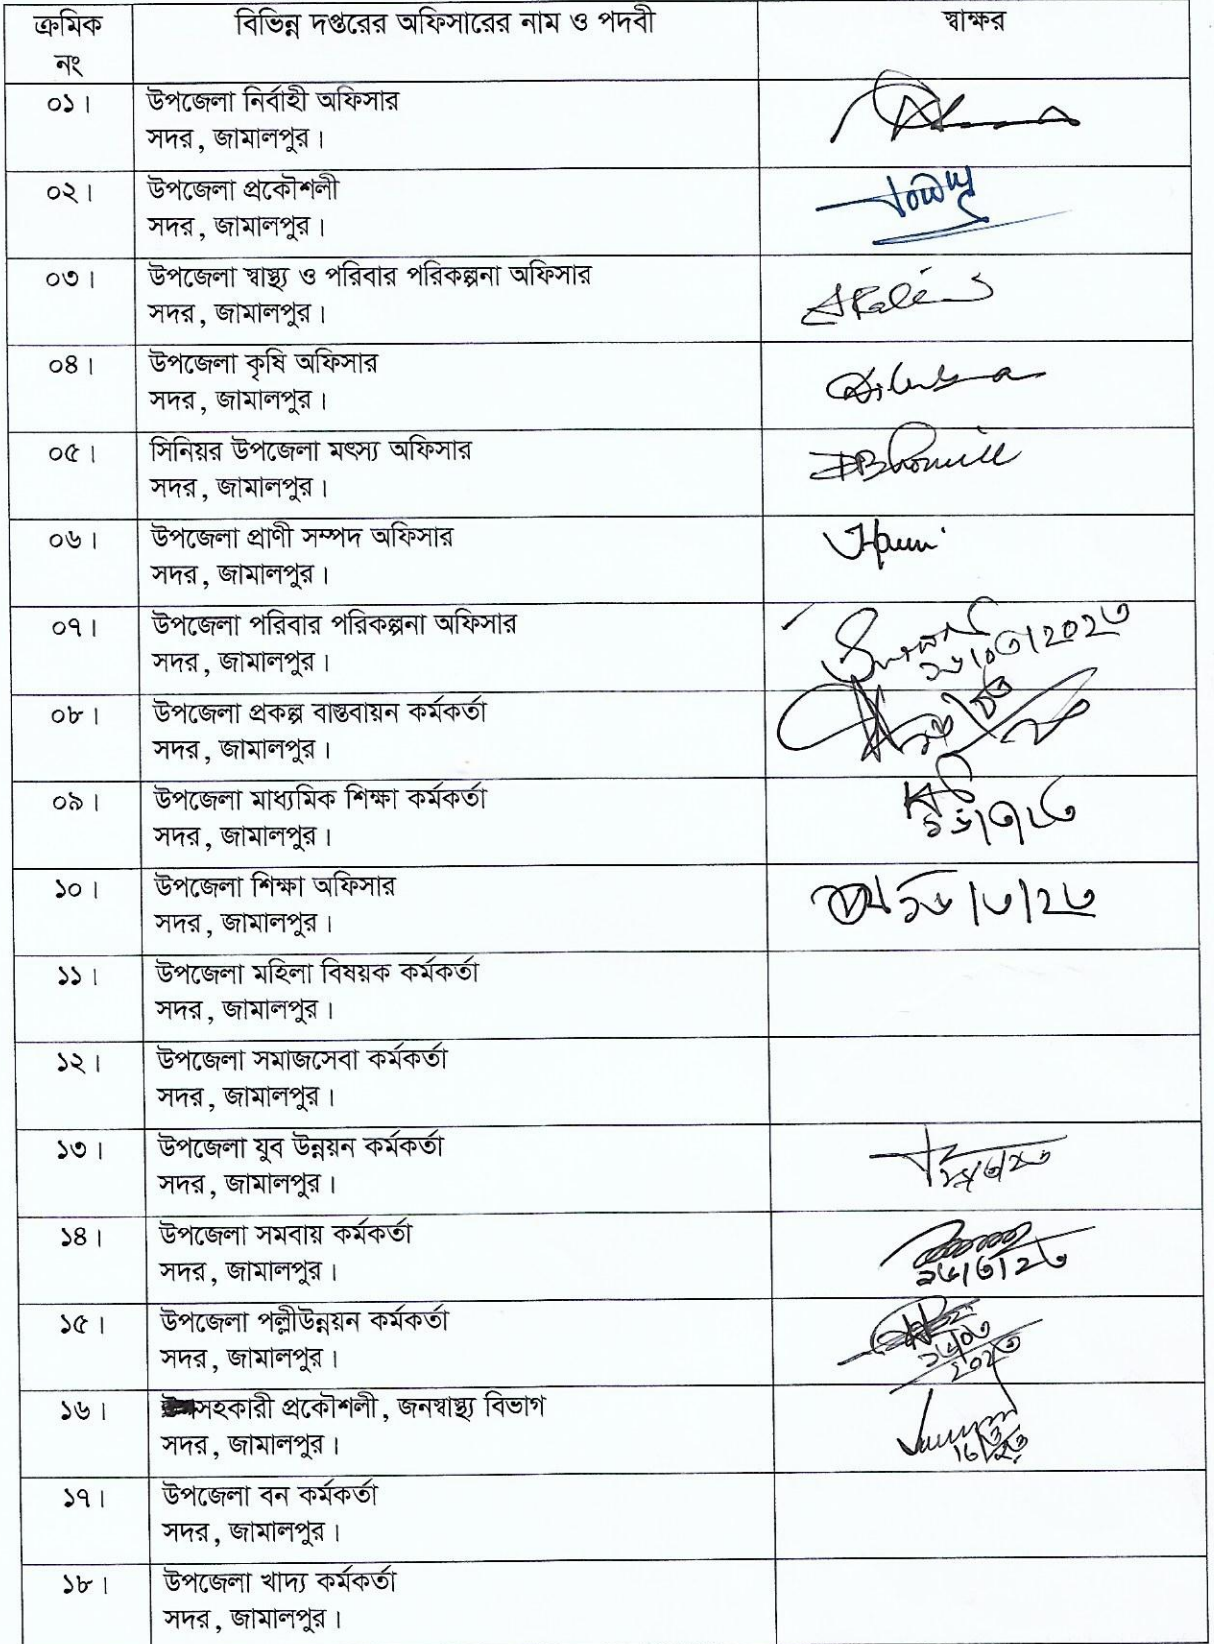 ক্রমিক নং বিভিন্ন দপ্তরের অফিসারের নাম ও পদবী স্বাক্ষর
০১। উপজেলা নির্বাহী অফিসার
সদর, জামালপুর।
০২। উপজেলা প্রকৌশলী
সদর, জামালপুর।
০৩। উপজেলা স্বাস্থ্য ও পরিবার পরিকল্পনা অফিসার
সদর, জামালপুর।
০৪। উপজেলা কৃষি অফিসার
সদর, জামালপুর।
০৫। সিনিয়র উপজেলা মৎস্য অফিসার
সদর, জামালপুর।
০৬। উপজেলা প্রাণী সম্পদ অফিসার
সদর, জামালপুর।
০৭। উপজেলা পরিবার পরিকল্পনা অফিসার
সদর, জামালপুর।
০৮। উপজেলা প্রকল্প বাস্তবায়ন কর্মকর্তা
সদর, জামালপুর।
০৯। উপজেলা মাধ্যমিক শিক্ষা কর্মকর্তা
সদর, জামালপুর।
১০। উপজেলা শিক্ষা অফিসার ১৬/৩/২৩
সদর, জামালপুর।
১১। উপজেলা মহিলা বিষয়ক কর্মকর্তা
সদর, জামালপুর।
১২। উপজেলা সমাজসেবা কর্মকর্তা
সদর, জামালপুর।
১৩। উপজেলা যুব উন্নয়ন কর্মকর্তা
সদর, জামালপুর।
১৪। উপজেলা সমবায় কর্মকর্তা
সদর, জামালপুর। ১৬/৩/২৩
১৫। উপজেলা পল্লীউন্নয়ন কর্মকর্তা
সদর, জামালপুর।
১৬। সহকারী প্রকৌশলী, জনস্বাস্থ্য বিভাগ
সদর, জামালপুর।
১৭। উপজেলা বন কর্মকর্তা
সদর, জামালপুর।
১৮। উপজেলা খাদ্য কর্মকর্তা
সদর, জামালপুর।